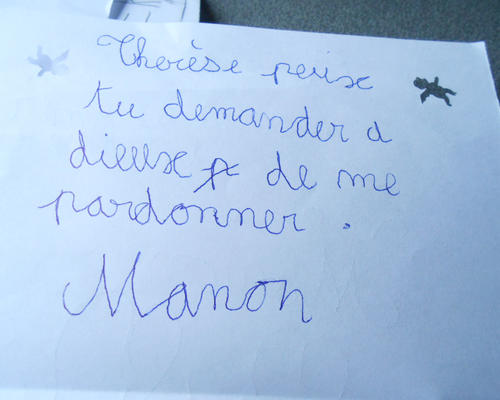 Thérèse peux
tu demander a
dieux de me
pardonner.
Manon